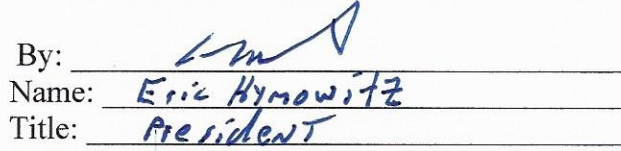 By:
Name: Eric Hymowitz
Title: President